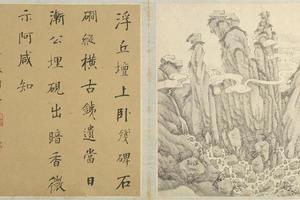 浮丘壇上卧殘碑石
磵縱橫古銕遺當日
漸公埋硯出暗香微
示阿咸知